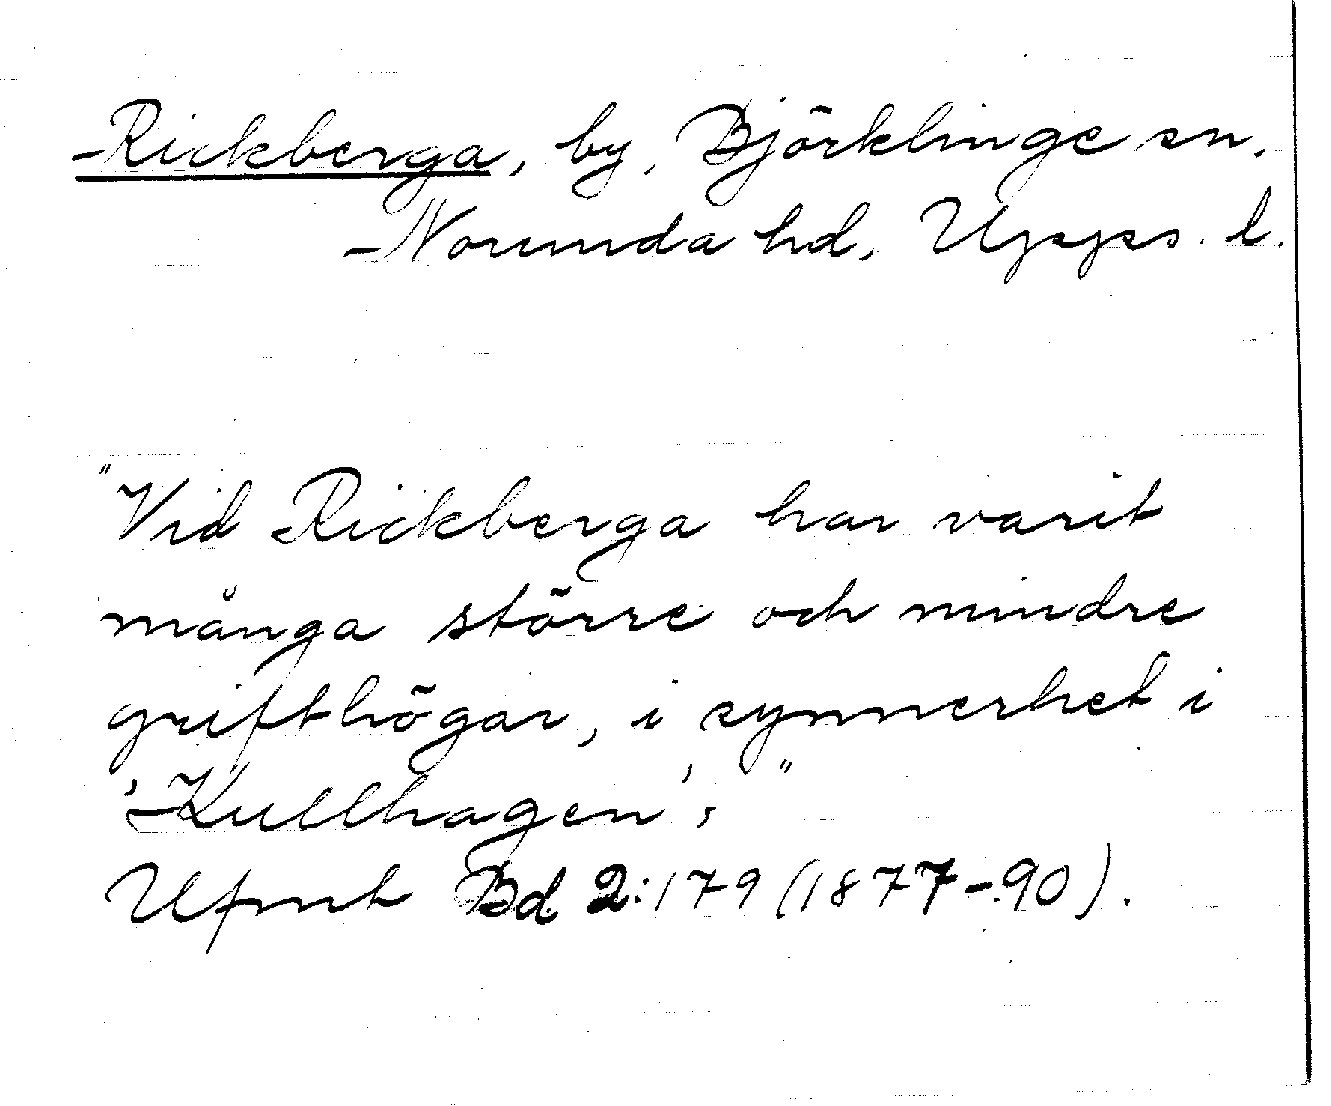 Rickberga, by, Björklinge sn,
Norunda hd, Upps. l.
"Vid Rickberga har varit
många större och mindre
grifthögar, i synnerhet i
'Kullhagen';"
Ufmt Bd 2:179 (1877-90).